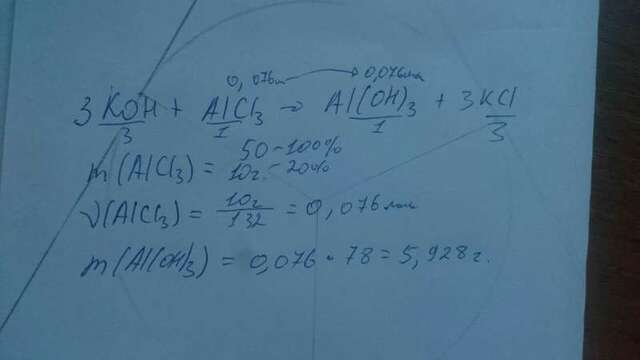 0,076м → 0,076моль
3KOH + AlCl₃ → Al(OH)₃ + 3KCl
3 1 1 3
50 - 100%
m(AlCl₃) = 10г. - 20%
ν(AlCl₃) = 10г/132 = 0,076моль
m(Al(OH)₃) = 0,076 · 78 = 5,928г.